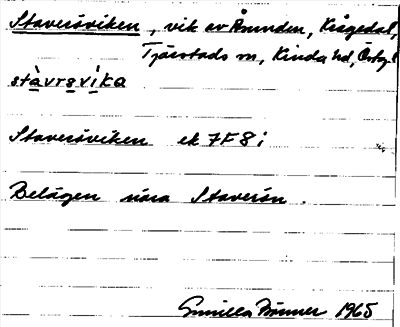 Staversviken, vik av Ämmern, Kisgedal,
Tjärstads sn, Kinda hd, Östg.
stàvrsvìka
Staversviken ek 7F8i
Belägen nära Staverön.
Gunilla Bonner 1965